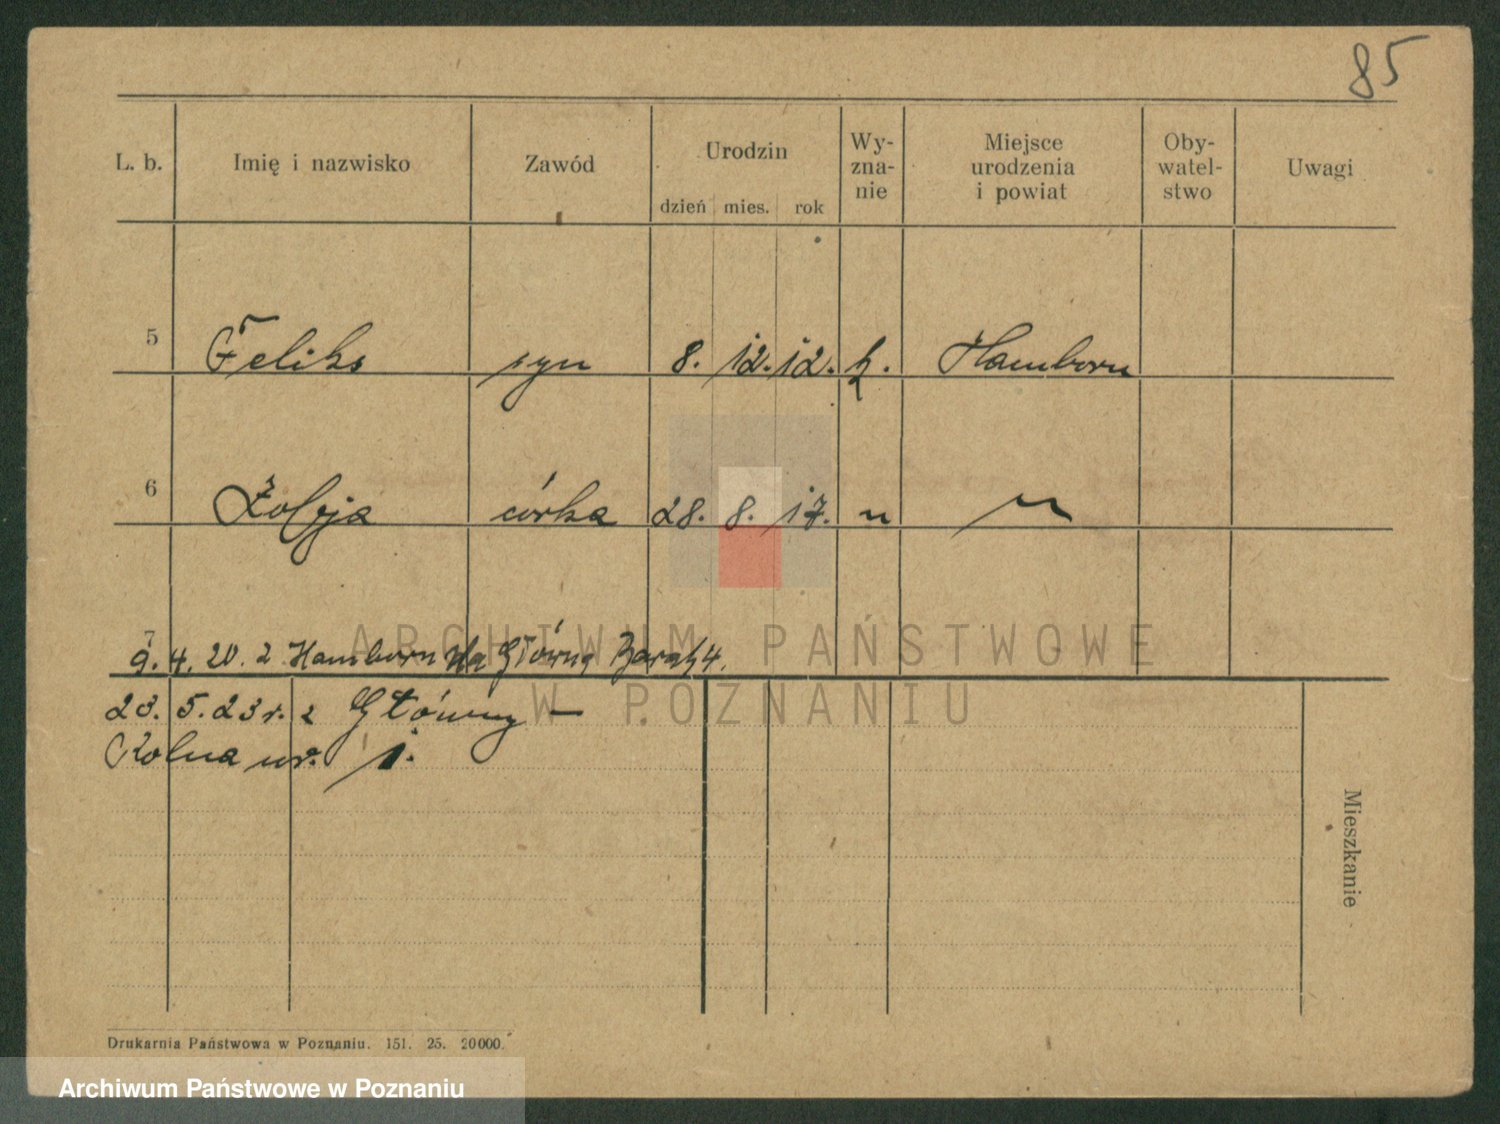 85
L. b. Imię i nazwisko Zawód Urodzin dzień mies. rok Wy-zna-nie Miejsce urodzenia i powiat Oby-watel-stwo Uwagi
5 Feliks syn 8. 12. 12. k. Hamborn
6 Zofja córka 28. 8. 17. "
7
9. 4. 20. z Hamborn na Główną Barak 4.
23. 5. 23 r. z Główny —
Rolna nr. 1.
Mieszkanie
Drukarnia Państwowa w Poznaniu. 151. 25. 20000.
ARCHIWUM PAŃSTWOWE
W POZNANIU
Archiwum Państwowe w Poznaniu